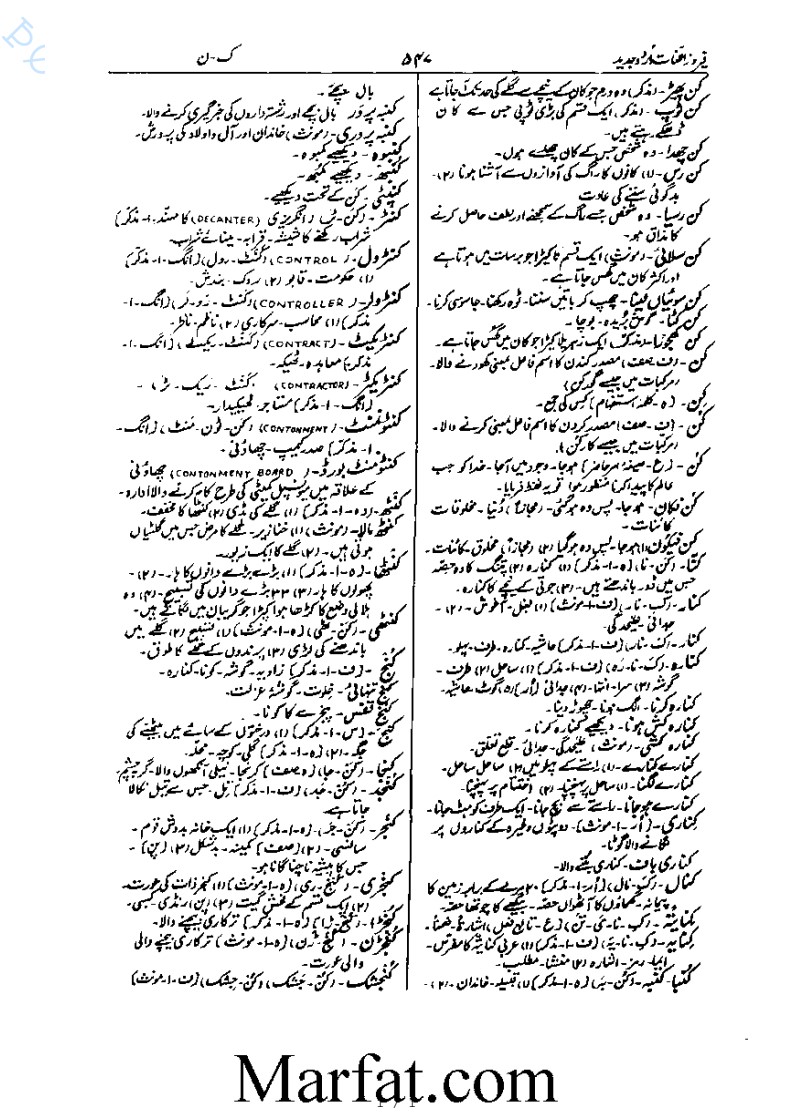 فیروز اللغات اُردو جدید
۵۴۷
ک-ن
کن پھیڑ - (مذکر) وہ ورم جو کان کے نیچے سے گلے کی حد تک جاتا ہے
کن ٹوپ - (مذکر) ایک قسم کی بڑی ٹوپی جس سے کان
ڈھکے رہتے ہیں۔
کن چھدا - وہ شخص جس کے کان چھدے ہوں۔
کن رس - (۱) کانوں کا راگ کی آوازوں سے آشنا ہونا (۲)
بدگوئی سننے کی عادت
کن رسیا - وہ شخص جسے راگ کے سمجھنے اور لطف حاصل کرنے
کا مذاق ہو۔
کن سلائی - (مونث) ایک قسم کا کیڑا جو برسات میں ہوتا ہے
اور اکثر کان میں گھس جاتا ہے۔
کن سوئیاں لینا - چھپ کر باتیں سننا - ٹوہ رکھنا - جاسوسی کرنا۔
کن کٹا - گوش بریدہ - بوچا۔
کن کھجورا - (مذکر) ایک زہریلا کیڑا جو کان میں گھس جاتا ہے۔
کن - (ف - صفت) مصدر کندن کا اسم فاعل بمعنی کھودنے والا۔
مرکبات میں جیسے گورکن)
کِن - (ہ - کلمۂ استفہام) کِس کی جمع۔
کُن - (ف - صفت) مصدر کردن کا اسم فاعل بمعنی کرنے والا۔
مرکبات میں جیسے کارکن)۔
کُن - (ع - صیغۂ امر حاضر) ہو جا - وجود میں آ جا - خدا کو جب
عالم کا پیدا کرنا منظور ہوا تو یہ لفظ فرمایا۔
کُن فکان - ہو جا - پس وہ ہو گئی - (مجازاً) دُنیا - مخلوقات
کائنات۔
کُن فیکون (۱) ہو جا - پس وہ ہو گیا (۲) (مجازاً) مخلوق - کائنات
کَنّا - (کَن - نا) (ہ - ا - مذکر) (۱) کنارہ (۲) پتنگ کا وہ حصہ
جس میں ڈور باندھتے ہیں - (۳) جوتی کے پنجے کا کنارہ۔
کنار - (کِ - نار) (ف - ا - مونث) (۱) بغل - آغوش - (۲)
جدائی - علیحدگی۔
کنار - (کَ - نار) (ف - ا - مذکر) حاشیہ - کنارہ - طرف - پہلو
کنارہ - (کِ - نا - رَہ) (ف - ا - مذکر) (۱) ساحل (۲) طرف -
گوشہ (۳) سرا - انتہا - (۴) جدائی [اُر] (۵) گوٹ - حاشیہ۔
کنارہ کرنا - الگ ہونا - چھوڑ دینا۔
کنارہ کش ہونا - دیکھیے کنارہ کرنا۔
کنارہ کشی - (مونث) علیحدگی - جدائی - قطع تعلق۔
کنارے کنارے - (۱) راستے کے پہلو میں (۲) ساحل ساحل۔
کنارے لگنا - (۱) ساحل پر پہنچنا (۲) اختتام پر پہنچنا۔
کنارے ہو جانا - راستے سے بچ جانا - ایک طرف کو ہٹ جانا۔
کناری - (اُر - ا - مونث) - دوپٹوں وغیرہ کے کناروں پر
لگانے والا گوٹا۔
کناری باف - کناری بننے والا۔
کنال - (کَ - نال) (اُر - ا - مذکر) ۲۰ مرلے کے برابر زمین کا
پیمانہ - گھماؤں کا آٹھواں حصہ - بیگھے کا چوتھا حصہ
کنایتہ - (کِ - نا - یَ - تَن) (ع - تابع فعل) اشارۃً ضمناً۔
کنایہ - (کِ - نا - یَہ) (ف - ا - مذکر) (۱) عربی کنایۃ کا مفرس
ایما - رمز - اشارہ (۲) منشا - مطلب۔
کنبا - کنبہ - (کُن - بَہ) (ہ - ا - مذکر) (۱) قبیلہ - خاندان - (۲)
بال بچے۔
کنبہ پرور - بال بچے اور رشتہ داروں کی خبرگیری کرنے والا۔
کنبہ پروری - (مونث) خاندان اور آل و اولاد کی پرورش۔
کنبوہ - دیکھیے کمبوہ۔
کنبھ - دیکھیے کمبھ۔
کنپٹی - کن کے تحت دیکھیے۔
کنٹر - (کَن - ٹر) [انگریزی (DECANTER) کا مہند - ا - مذکر]
شراب رکھنے کا شیشہ - قرابہ - مینائے شراب
کنٹرول - (CONTROL) (کَنٹ - رول) [انگ - ا - مذکر]
(۱) حکومت - قابو (۲) روک - بندش۔
کنٹرولر - (CONTROLLER) (کَنٹ - رو - لر) [انگ - ا -
مذکر] (۱) محاسب سرکاری (۲) ناظم - ناظر
کنٹریکٹ - (CONTRACT) (کَنٹ - ریکٹ) [انگ - ا -
مذکر] معاہدہ - ٹھیکہ۔
کنٹریکٹر - (CONTRACTOR) کَنٹ - ریک - ٹر) -
[انگ - ا - مذکر] مستاجر - ٹھیکیدار۔
کنٹونمنٹ - (CONTONMENT) (کن - ٹون - منٹ) [انگ -
ا - مذکر] صدر کیمپ - چھاؤنی۔
کنٹونمنٹ بورڈ - (CONTONMENT BOARD) چھاؤنی
کے علاقہ میں میونسپل کمیٹی کی طرح کام کرنے والا ادارہ۔
کنٹھ - (ہ - ا - مذکر) (۱) گلے کی ہڈی (۲) کنٹھا کا مخفف۔
کنٹھ مالا - (مونث) (۱) خنازیر - گلے کا مرض جس میں گلٹیاں
ہوتی ہیں - (۲) گلے کا ایک زیور۔
کنٹھا - (کَن - ٹھا) (ہ - ا - مذکر) (۱) بڑے بڑے دانوں کا ہار - (۲)
پھولوں کا ہار (۳) ۳۳ بڑے دانوں کی تسبیح - (۴) وہ
ہلالی وضع کا کڑھا ہوا کپڑا جو گریبان میں لگاتے ہیں۔
کنٹھی - (کَن - ٹھی) (ہ - ا - مونث) (۱) تسبیح (۲) گلے میں
باندھنے کی لڑی (۳) پرندوں کے گلے کا طوق۔
کُنج - (ف - ا - مذکر) زاویہ - گوشہ - کونا - کنارہ۔
کنج تنہائی - خلوت - گوشۂ عزلت۔
کنج قفس - پنجرے کا کونا۔
کنج - (س - ا - مذکر) (۱) درختوں کے سائے میں بیٹھنے کی
جگہ - (۲) (ہ - ا - مذکر) گلی - کوچہ - محلہ۔
کنجا - (کن - جا) (ہ صفت) کرنجا - نیلی آنکھوں والا - گربہ چشم
کنجد - (کُن - جد) (ف - ا - مذکر) تِل - جس سے تیل نکالا
جاتا ہے
کنجر - (کن - جر) (ہ - ا - مذکر) (۱) ایک خانہ بدوش قوم -
سانسی - (۲) (صفت) کمینہ - بدشکل (۳) [پن] -
جس کا پیشہ ناچنا گانا ہو۔
کنجری - (کنج - ری) (ہ - ا - مونث) (۱) کنجر ذات کی عورت -
(۲) ایک قسم کے فحش گیت (۳) [پن] رنڈی - کسبی۔
کنجڑا - (کُنج - ڑا) (ہ - ا - مذکر) ترکاری بیچنے والا۔
کنجڑن - (کُنج - ڑن) (ہ - ا - مونث) ترکاری بیچنے والی
والی عورت۔
کنجشک - (کُن - جَشک) (کُن - جِشک) (ف - ا - مونث)
Marfat.com